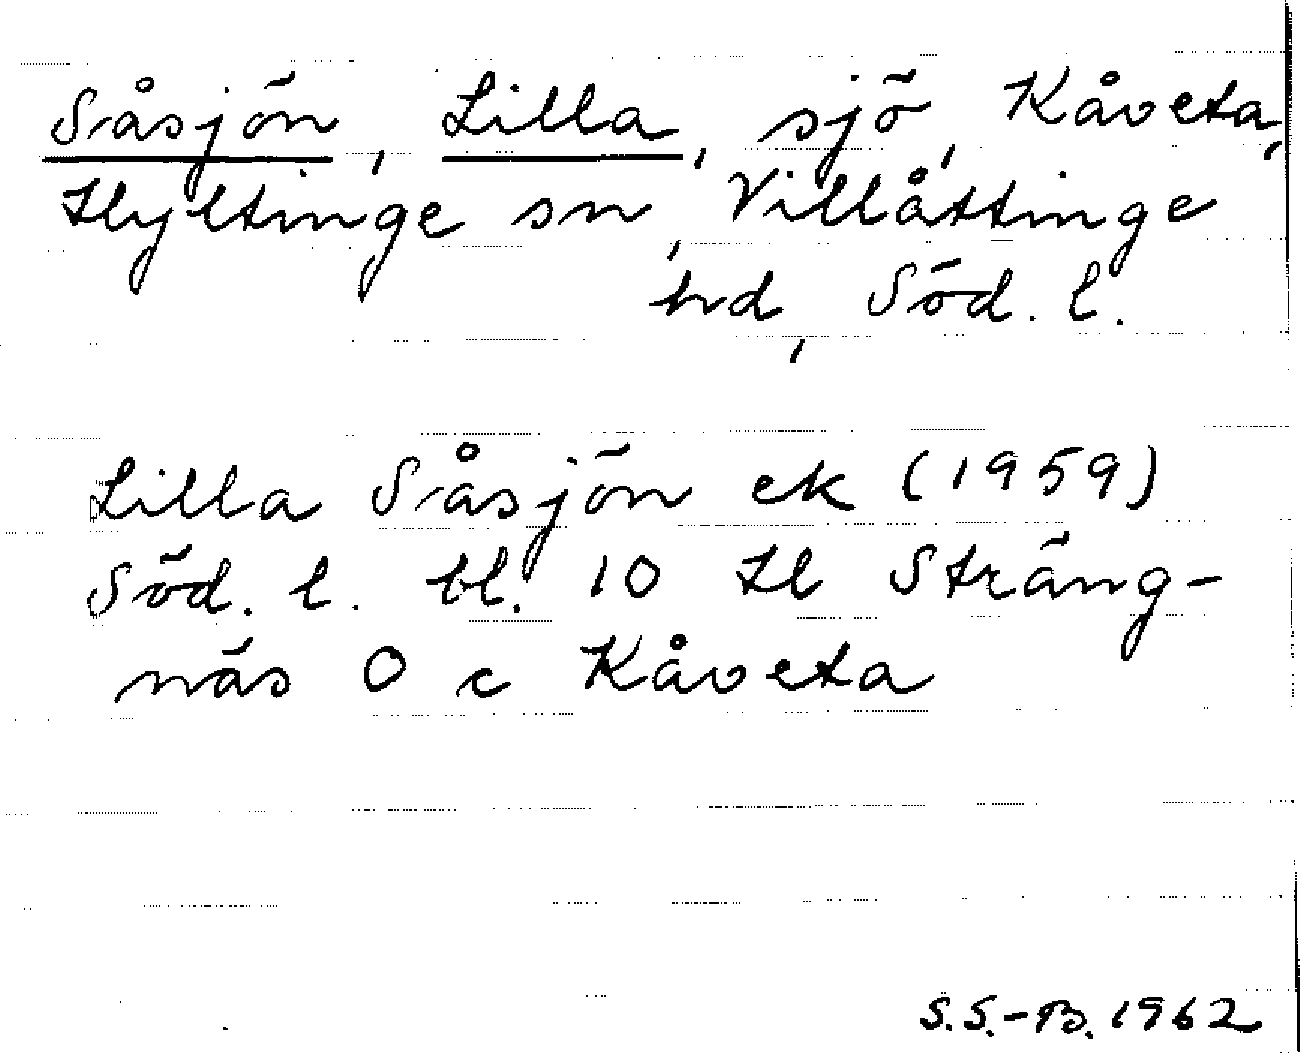 Såsjön, Lilla, sjö, Kåveta,
Hyltinge sn, Villåttinge
hd, Söd. l.
Lilla Såsjön ek (1959)
Söd. l. bl. 10 H l Sträng-
näs O c Kåveta
S.S.-B. 1962